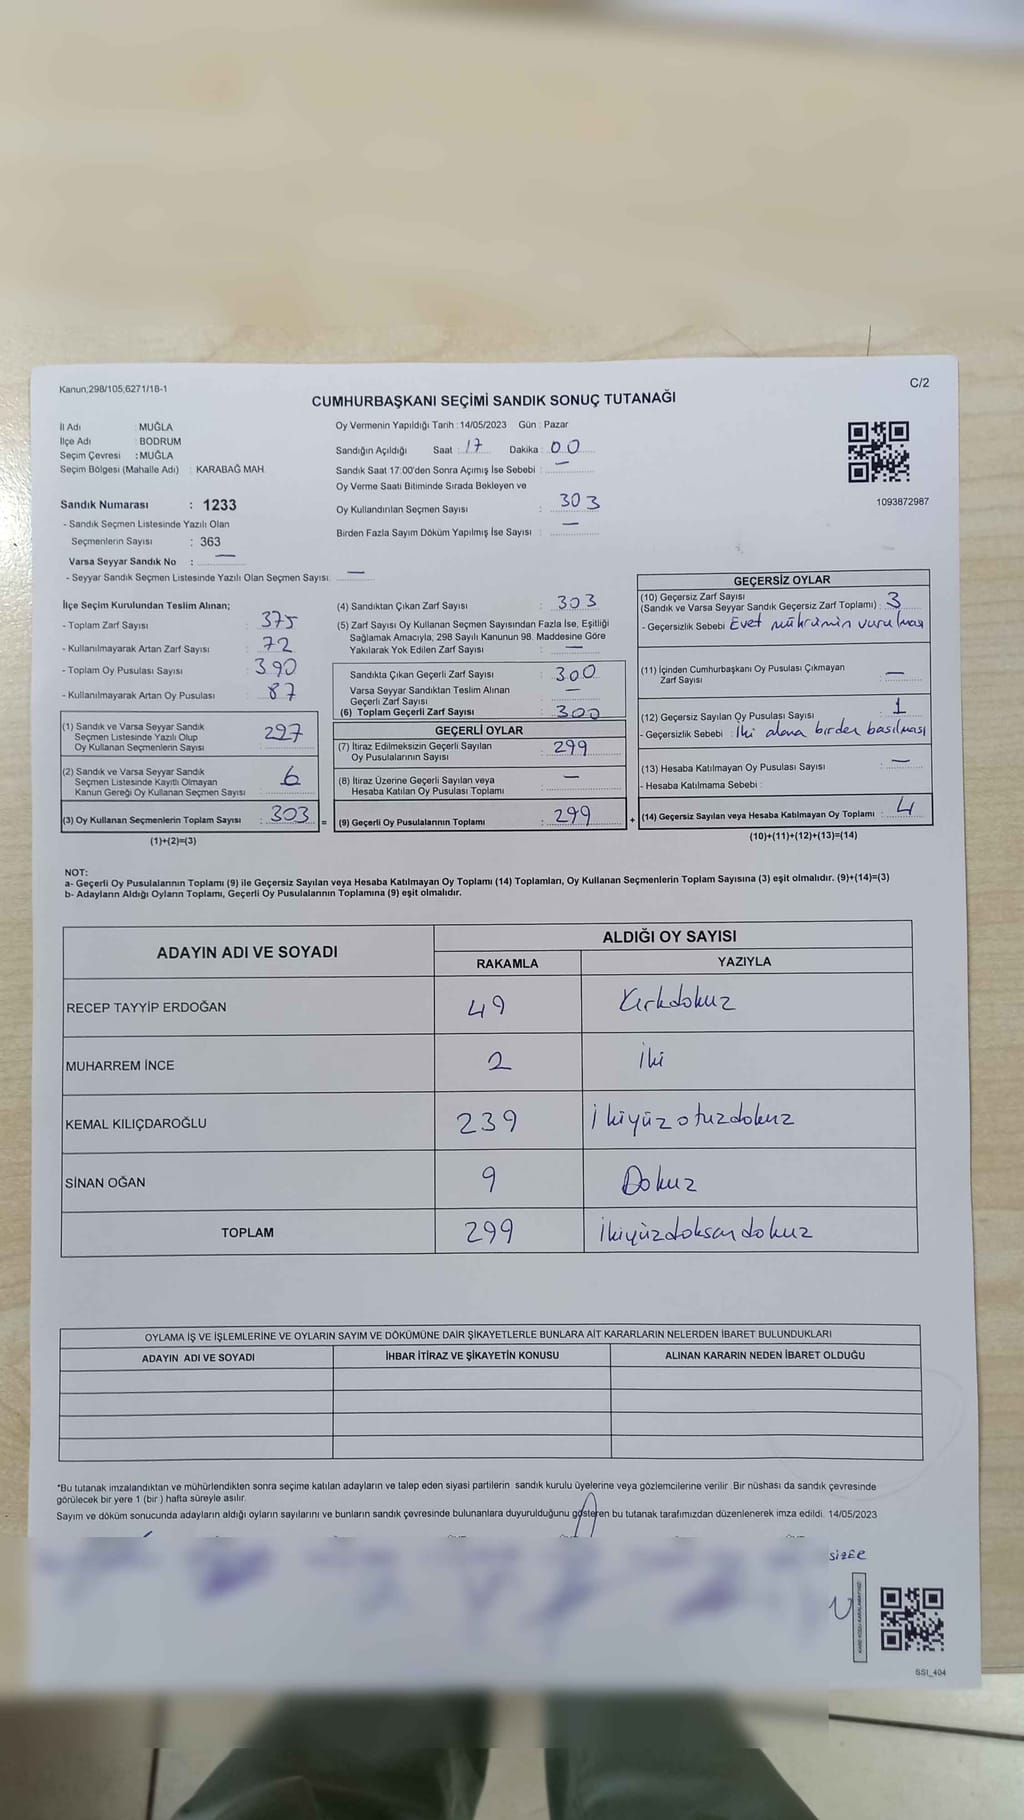 Kanun;298/105,6271/18-1
C/2
CUMHURBAŞKANI SEÇİMİ SANDIK SONUÇ TUTANAĞI
İl Adı : MUĞLA
İlçe Adı : BODRUM
Seçim Çevresi : MUĞLA
Seçim Bölgesi (Mahalle Adı) : KARABAĞ MAH.
Oy Vermenin Yapıldığı Tarih : 14/05/2023 Gün : Pazar
Sandığın Açıldığı Saat : 17 Dakika : 00
Sandık Saat 17:00'den Sonra Açımış İse Sebebi : —
Oy Verme Saati Bitiminde Sırada Bekleyen ve
Oy Kullandırılan Seçmen Sayısı : 303
Birden Fazla Sayım Döküm Yapılmış İse Sayısı : —
1093872987
Sandık Numarası : 1233
- Sandık Seçmen Listesinde Yazılı Olan
Seçmenlerin Sayısı : 363
Varsa Seyyar Sandık No : —
- Seyyar Sandık Seçmen Listesinde Yazılı Olan Seçmen Sayısı: —
İlçe Seçim Kurulundan Teslim Alınan;
- Toplam Zarf Sayısı : 375
- Kullanılmayarak Artan Zarf Sayısı : 72
- Toplam Oy Pusulası Sayısı : 390
- Kullanılmayarak Artan Oy Pusulası : 87
(1) Sandık ve Varsa Seyyar Sandık
Seçmen Listesinde Yazılı Olup
Oy Kullanan Seçmenlerin Sayısı : 297
(2) Sandık ve Varsa Seyyar Sandık
Seçmen Listesinde Kayıtlı Olmayan
Kanun Gereği Oy Kullanan Seçmen Sayısı : 6
(3) Oy Kullanan Seçmenlerin Toplam Sayısı : 303 =
(1)+(2)=(3)
(4) Sandıktan Çıkan Zarf Sayısı : 303
(5) Zarf Sayısı Oy Kullanan Seçmen Sayısından Fazla İse, Eşitliği
Sağlamak Amacıyla, 298 Sayılı Kanunun 98. Maddesine Göre
Yakılarak Yok Edilen Zarf Sayısı : —
Sandıkta Çıkan Geçerli Zarf Sayısı : 300
Varsa Seyyar Sandıktan Teslim Alınan
Geçerli Zarf Sayısı : —
(6) Toplam Geçerli Zarf Sayısı : 300
GEÇERLİ OYLAR
(7) İtiraz Edilmeksizin Geçerli Sayılan
Oy Pusulalarının Sayısı : 299
(8) İtiraz Üzerine Geçerli Sayılan veya
Hesaba Katılan Oy Pusulası Toplamı : —
(9) Geçerli Oy Pusulalarının Toplamı : 299 +
GEÇERSİZ OYLAR
(10) Geçersiz Zarf Sayısı
(Sandık ve Varsa Seyyar Sandık Geçersiz Zarf Toplamı) : 3
- Geçersizlik Sebebi : Evet mührünün vurulması
(11) İçinden Cumhurbaşkanı Oy Pusulası Çıkmayan
Zarf Sayısı : —
(12) Geçersiz Sayılan Oy Pusulası Sayısı : 1
- Geçersizlik Sebebi : İki alana birden basılması
(13) Hesaba Katılmayan Oy Pusulası Sayısı : —
- Hesaba Katılmama Sebebi :
(14) Geçersiz Sayılan veya Hesaba Katılmayan Oy Toplamı : 4
(10)+(11)+(12)+(13)=(14)
NOT:
a- Geçerli Oy Pusulalarının Toplamı (9) ile Geçersiz Sayılan veya Hesaba Katılmayan Oy Toplamı (14) Toplamları, Oy Kullanan Seçmenlerin Toplam Sayısına (3) eşit olmalıdır. (9)+(14)=(3)
b- Adayların Aldığı Oyların Toplamı, Geçerli Oy Pusulalarının Toplamına (9) eşit olmalıdır.
ADAYIN ADI VE SOYADI ALDIĞI OY SAYISI
RAKAMLA YAZIYLA
RECEP TAYYİP ERDOĞAN 49 Kırkdokuz
MUHARREM İNCE 2 İki
KEMAL KILIÇDAROĞLU 239 İkiyüzotuzdokuz
SİNAN OĞAN 9 Dokuz
TOPLAM 299 İkiyüzdoksandokuz
OYLAMA İŞ VE İŞLEMLERİNE VE OYLARIN SAYIM VE DÖKÜMÜNE DAİR ŞİKAYETLERLE BUNLARA AİT KARARLARIN NELERDEN İBARET BULUNDUKLARI
ADAYIN ADI VE SOYADI İHBAR İTİRAZ VE ŞİKAYETİN KONUSU ALINAN KARARIN NEDEN İBARET OLDUĞU
*Bu tutanak imzalandıktan ve mühürlendikten sonra seçime katılan adayların ve talep eden siyasi partilerin sandık kurulu üyelerine veya gözlemcilerine verilir. Bir nüshası da sandık çevresinde
görülecek bir yere 1 (bir) hafta süreyle asılır.
Sayım ve döküm sonucunda adayların aldığı oyların sayılarını ve bunların sandık çevresinde bulunanlara duyurulduğunu gösteren bu tutanak tarafımızdan düzenlenerek imza edildi. 14/05/2023
SİZER
SSI_404